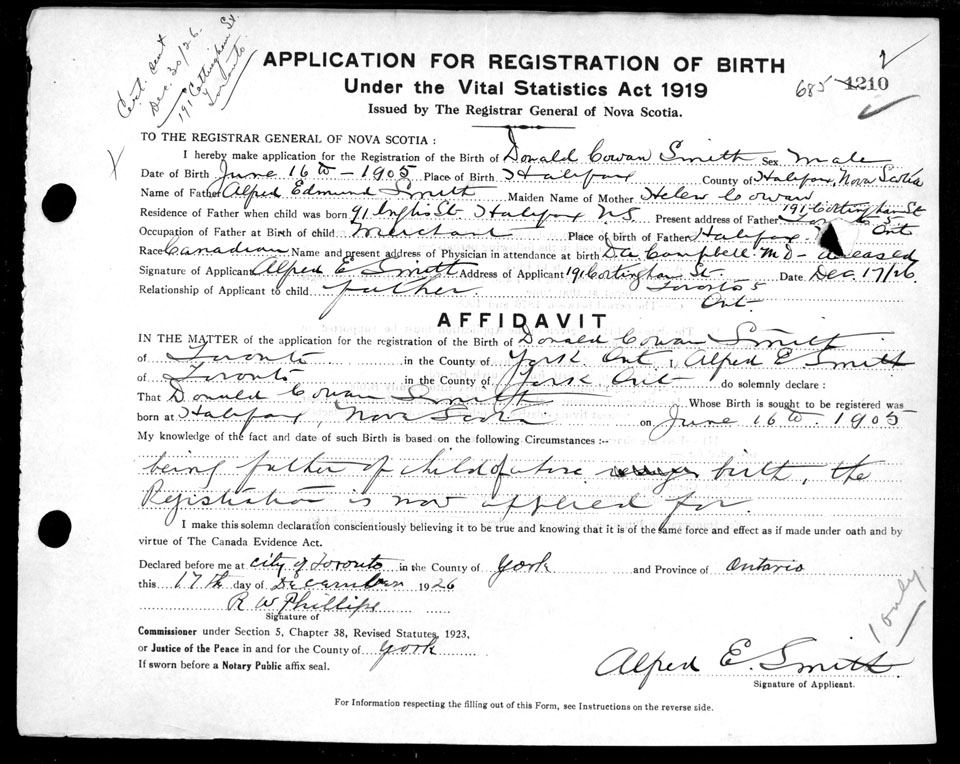 Cert. sent
Dec. 30/26.
191 Cottingham St.
Toronto.
APPLICATION FOR REGISTRATION OF BIRTH
Under the Vital Statistics Act 1919
Issued by The Registrar General of Nova Scotia.
2
685 1210
TO THE REGISTRAR GENERAL OF NOVA SCOTIA :
I hereby make application for the Registration of the Birth of Donald Cowan Smith Sex Male
Date of Birth June 16th - 1905 Place of Birth Halifax County of Halifax, Nova Scotia
Name of Father Alfred Edmund Smith Maiden Name of Mother Helen Cowan
Residence of Father when child was born 91 Inglis St Halifax N.S. Present address of Father 191 Cottingham St 5 Ont
Occupation of Father at Birth of child Merchant Place of birth of Father Halifax.
Race Canadian Name and present address of Physician in attendance at birth D.A. Campbell M.D - deceased
Signature of Applicant Alfred E Smith Address of Applicant 191 Cottingham St Date Dec. 17/26
Relationship of Applicant to child father. Toronto 5
Ont.
AFFIDAVIT
IN THE MATTER of the application for the registration of the Birth of Donald Cowan Smith
of Toronto in the County of York Ont, I, Alfred E Smith
of Toronto in the County of York Ont do solemnly declare :
That Donald Cowan Smith Whose Birth is sought to be registered was
born at Halifax, Nova Scotia on June 16th. 1905
My knowledge of the fact and date of such Birth is based on the following Circumstances :--
being father of child of whose birth, the
Registration is now applied for.
I make this solemn declaration conscientiously believing it to be true and knowing that it is of the same force and effect as if made under oath and by
virtue of The Canada Evidence Act.
Declared before me at city of Toronto in the County of York and Province of Ontario
this 17th day of December 1926
R W Phillips
Signature of
Commissioner under Section 5, Chapter 38, Revised Statutes, 1923,
or Justice of the Peace in and for the County of York
If sworn before a Notary Public affix seal.
1 only.
Alfred E. Smith.
Signature of Applicant.
For Information respecting the filling out of this Form, see Instructions on the reverse side.